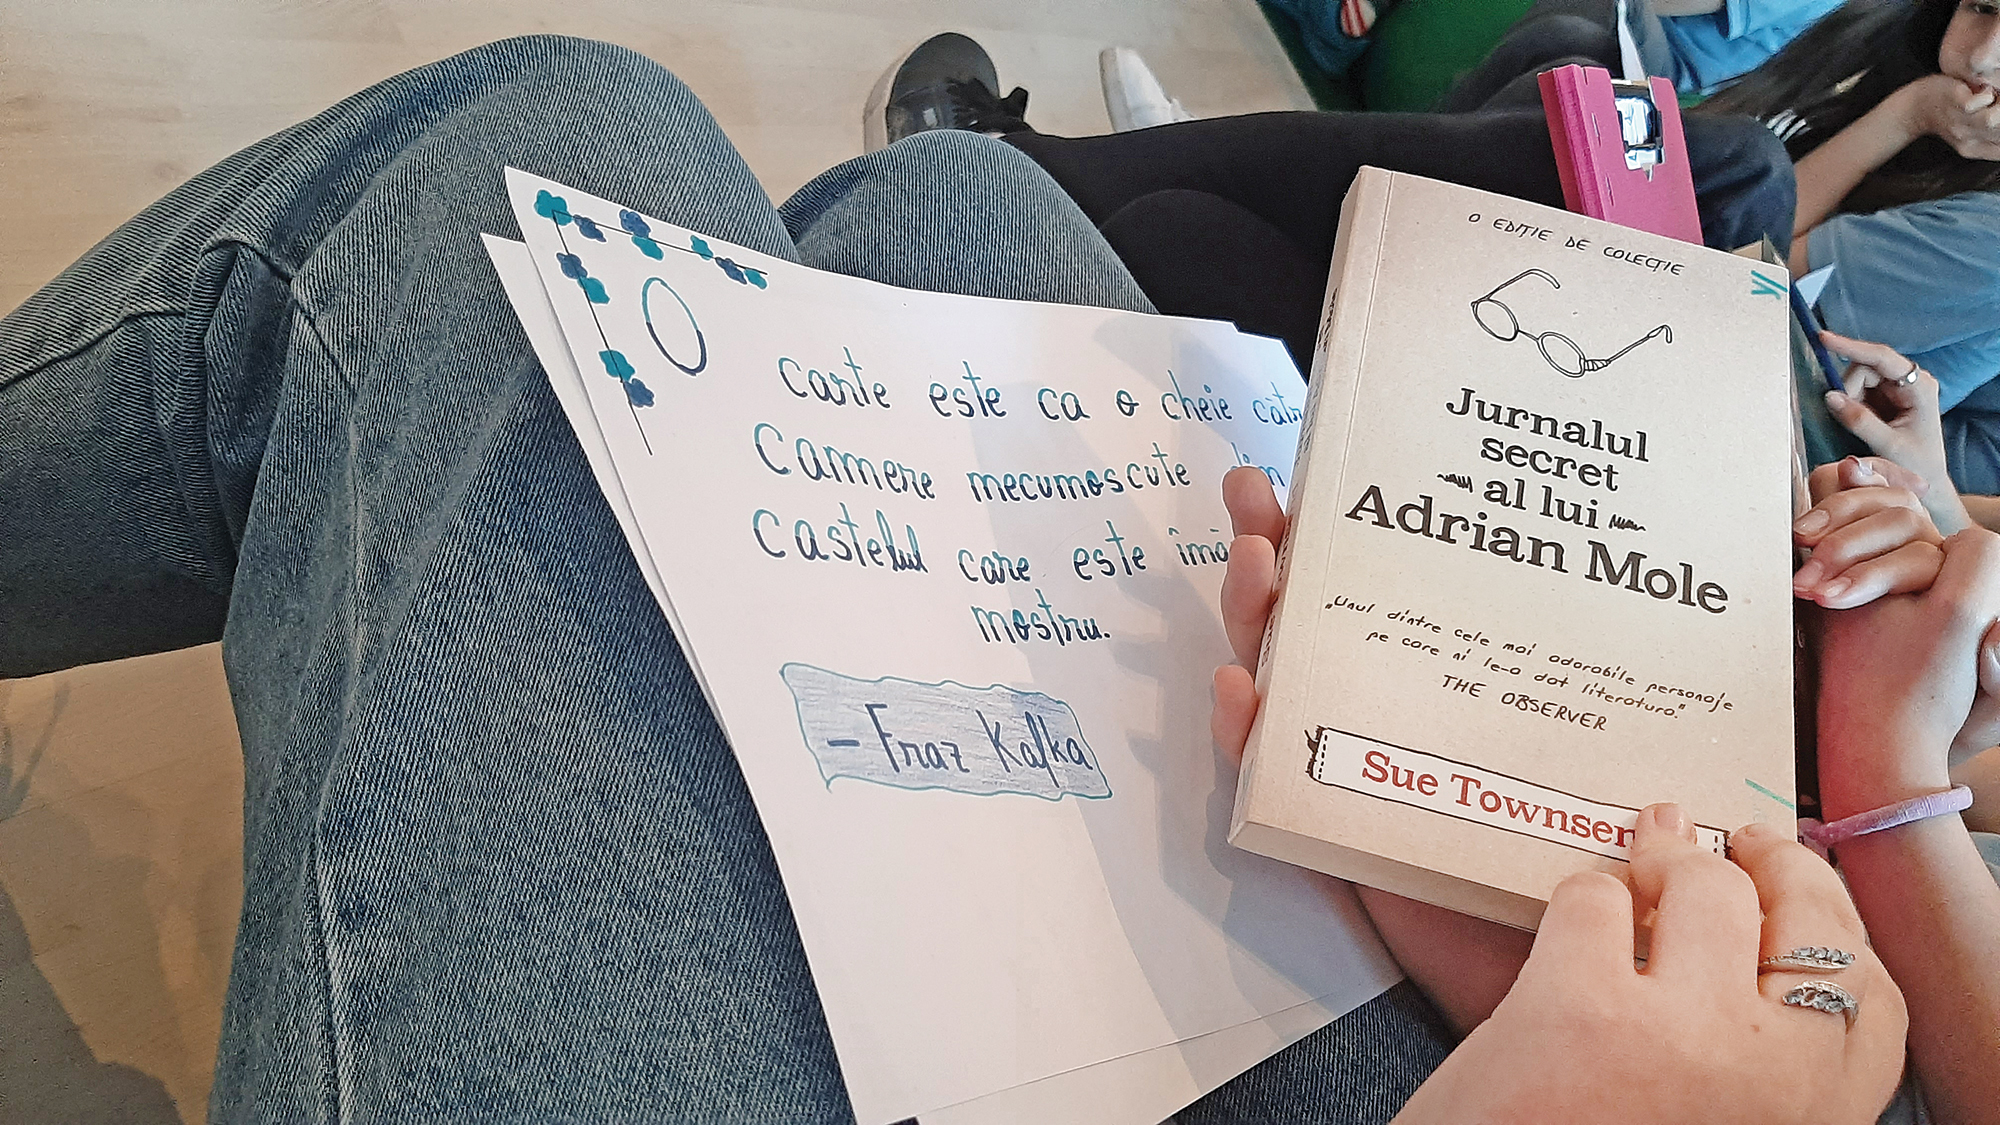 O carte este ca o cheie cătr
Camere necunoscute din
Castelul care este îna
nostru.
– Fraz Kafka
O EDIȚIE DE COLECȚIE
Jurnalul
secret
al lui
Adrian Mole
„Unul dintre cele mai adorabile personaje
pe care ni le-a dat literatura."
THE OBSERVER
Sue Townsen